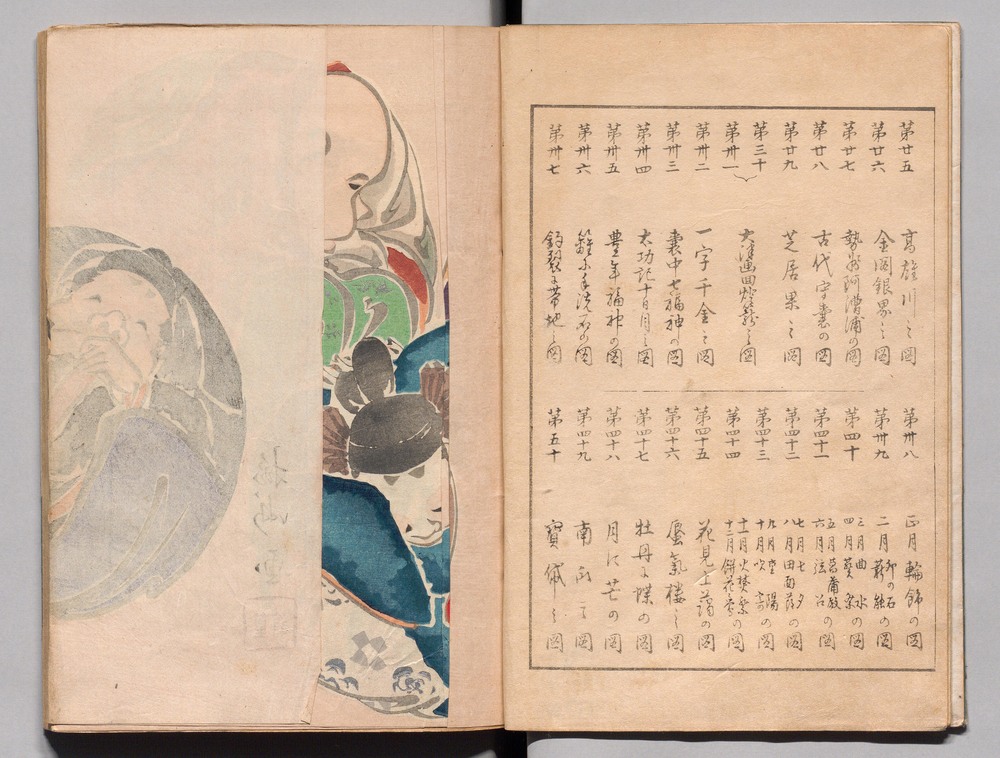 第廿五 高雄川之図
第廿六 金閣銀閣之図
第廿七 勢州阿漕浦の図
第廿八 古代守嚢の図
第廿九 芝居果之図
第三十
第卅一 大津画田燈籠之図
第卅二 一字千金之図
第卅三 嚢中七福神の図
第卅四 太功記十日目之図
第卅五 豊年福神の図
第卅六 雛小手洗石の図
第卅七 釼製子帯地之図
第卅八 正月輪飾の図
第卅九 二月 卯の石 薪能の図
第四十 三月曲水 四月葵祭の図
第四十一 五月菖蒲 六月 の図
第四十二 七月七夕 八月田面 の図
第四十三 九月重陽 十月吹 の図
第四十四 十一月火焚祭 十二月餅花 の図
第四十五 花見上﨟の図
第四十六 蜃氣楼之図
第四十七 牡丹に蝶の図
第四十八 月に芒の図
第四十九 南 之図
第五十 寶 之図